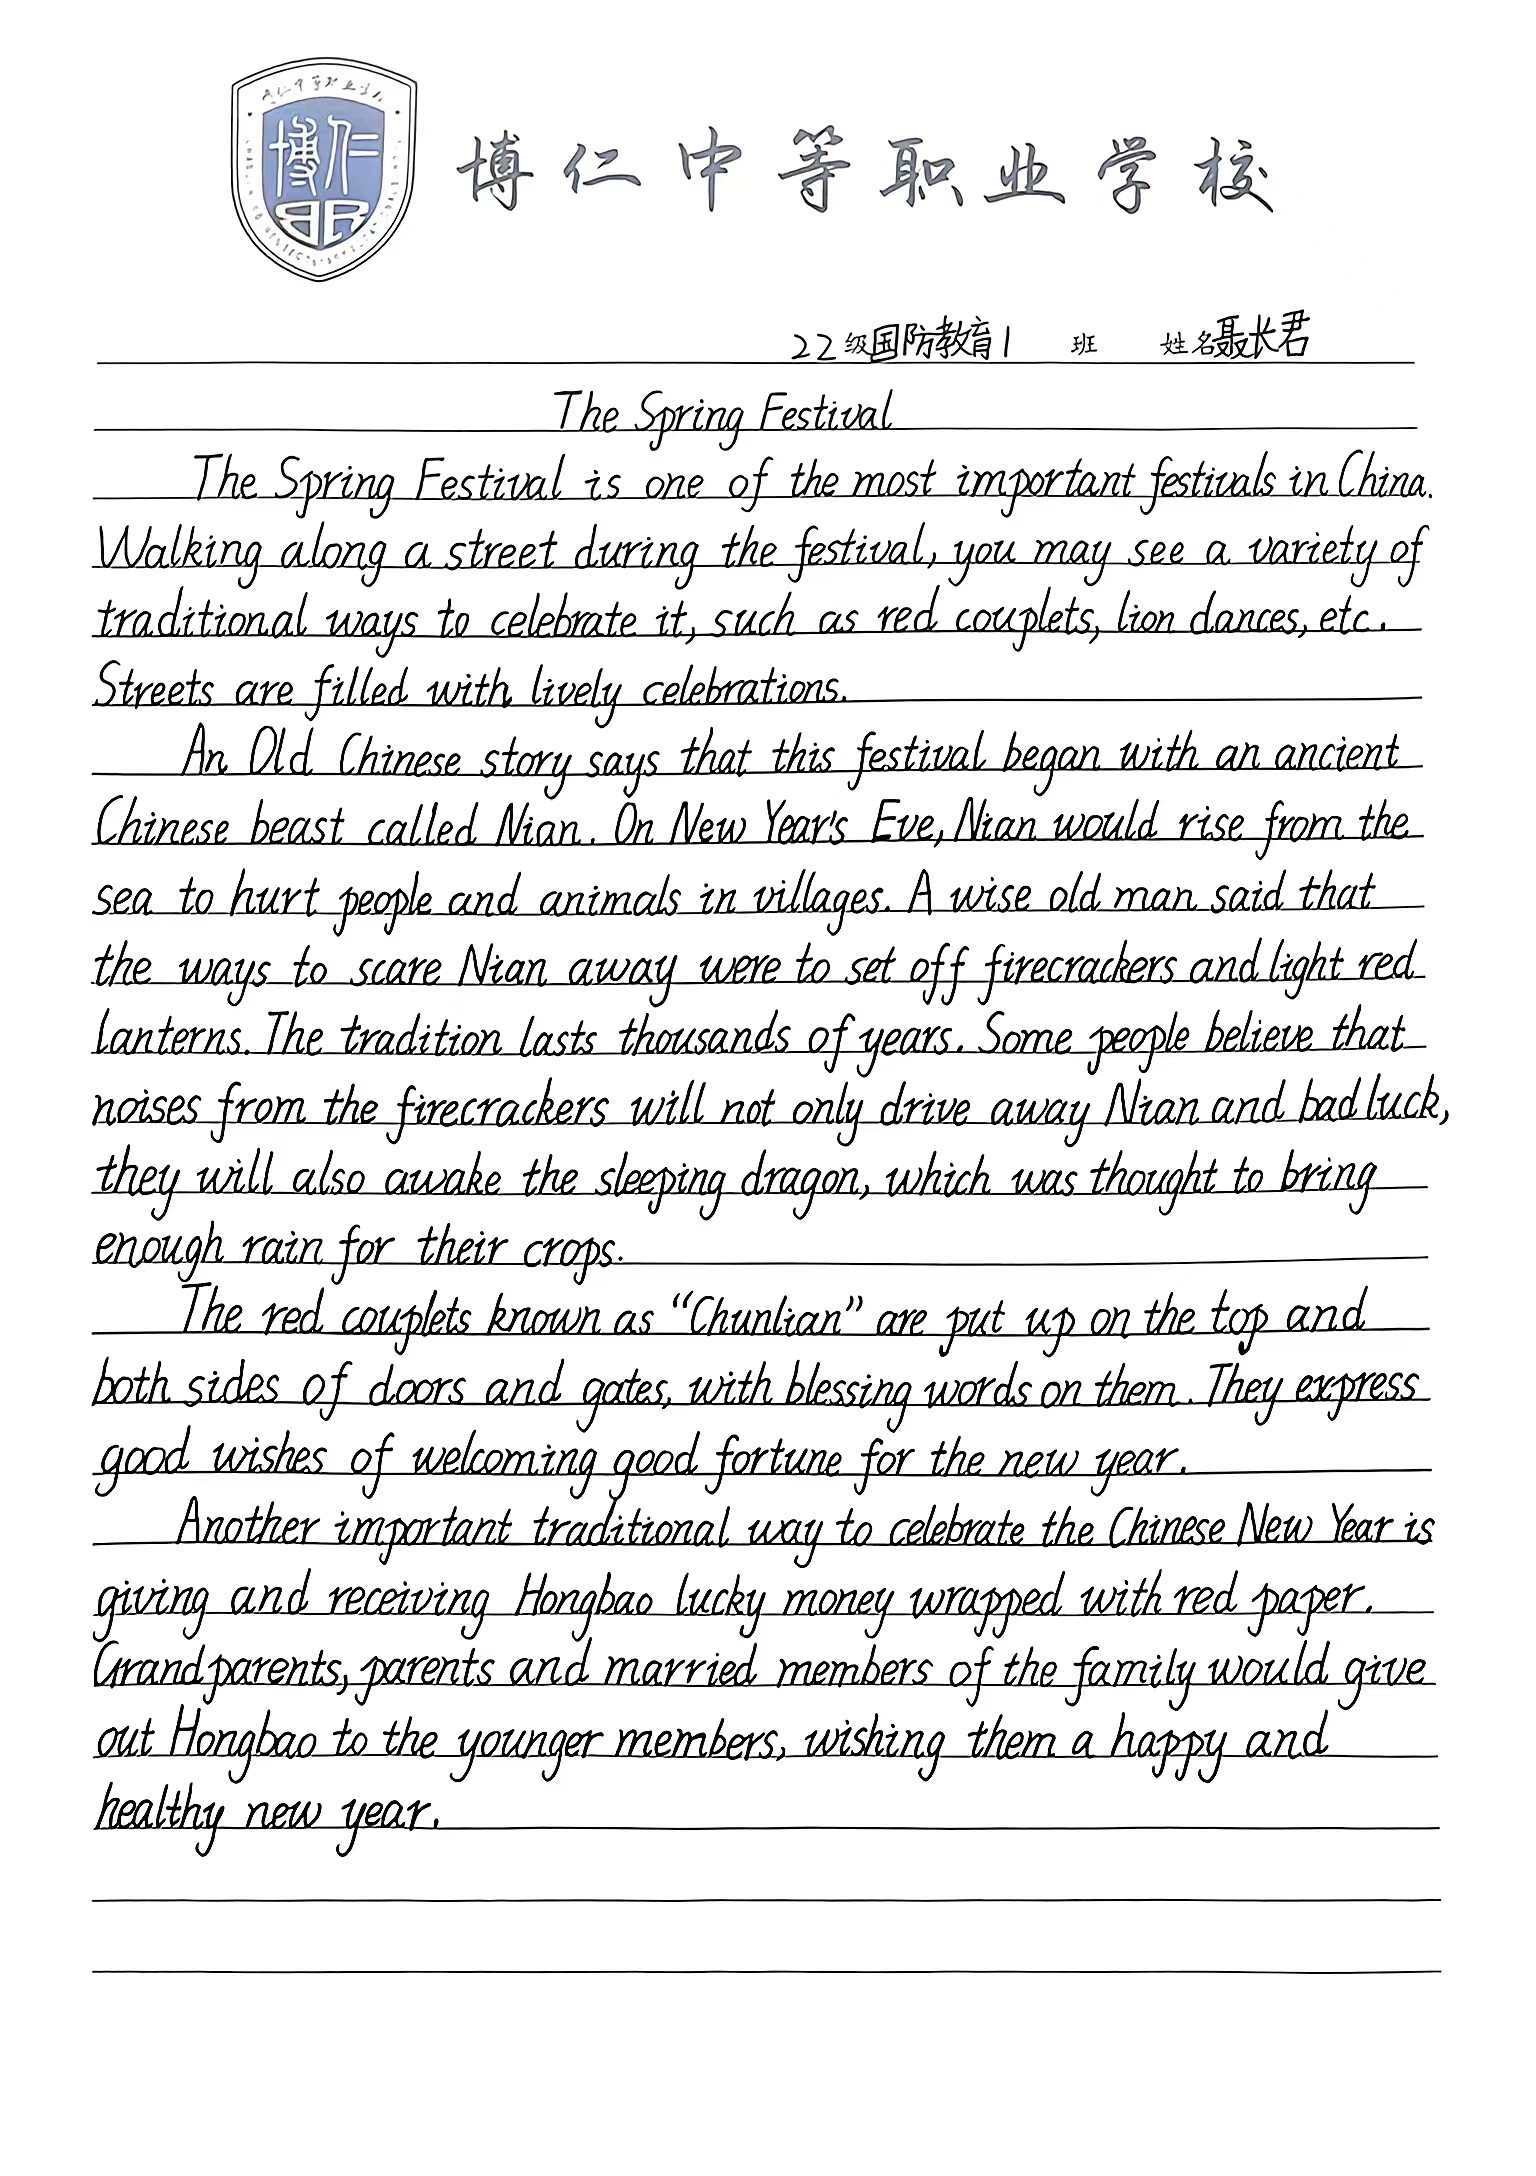 博仁
博仁中等职业学校
22级国防教育1 班 姓名聂长君
The Spring Festival
The Spring Festival is one of the most important festivals in China.
Walking along a street during the festival, you may see a variety of
traditional ways to celebrate it, such as red couplets, lion dances, etc.
Streets are filled with lively celebrations.
An Old Chinese story says that this festival began with an ancient
Chinese beast called Nian. On New Year's Eve, Nian would rise from the
sea to hurt people and animals in villages. A wise old man said that
the ways to scare Nian away were to set off firecrackers and light red
lanterns. The tradition lasts thousands of years. Some people believe that
noises from the firecrackers will not only drive away Nian and bad luck,
they will also awake the sleeping dragon, which was thought to bring
enough rain for their crops.
The red couplets known as “Chunlian” are put up on the top and
both sides of doors and gates, with blessing words on them. They express
good wishes of welcoming good fortune for the new year.
Another important traditional way to celebrate the Chinese New Year is
giving and receiving Hongbao lucky money wrapped with red paper.
Grandparents, parents and married members of the family would give
out Hongbao to the younger members, wishing them a happy and
healthy new year.